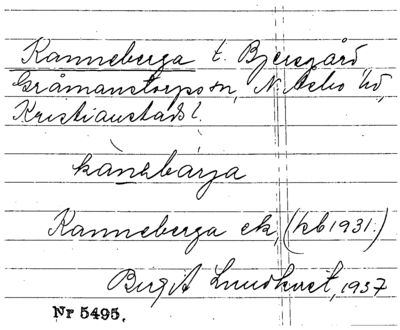 Kanneberga t. Bjersgård,
Gråmanstorps sn, N. Åsbo hd,
Kristianstads l.
kànəbærja
Kanneberga ek, (hb 1931.)
Birgit Lundkvist, 1937
Nr 5495.